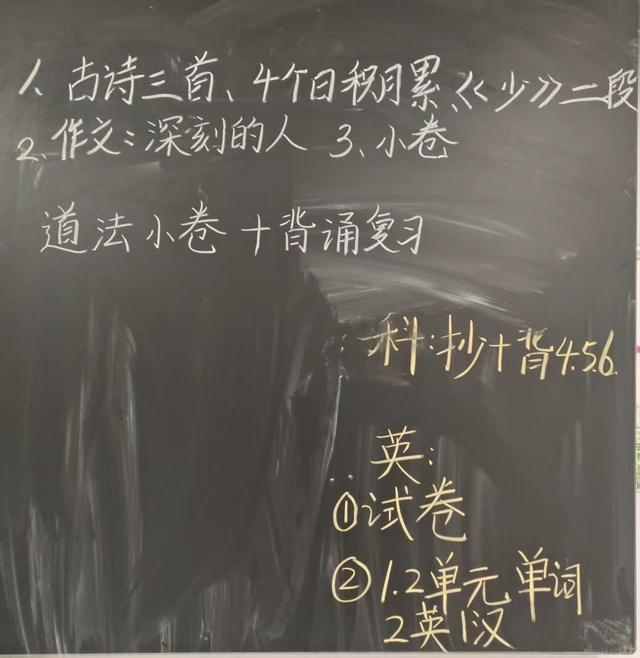 1、古诗三首、4个日积月累、《少》二段
2、作文:深刻的人 3、小卷
道法小卷+背诵复习
科:抄+背4.5.6.
英:
①试卷
②1.2单元单词
2英1汉